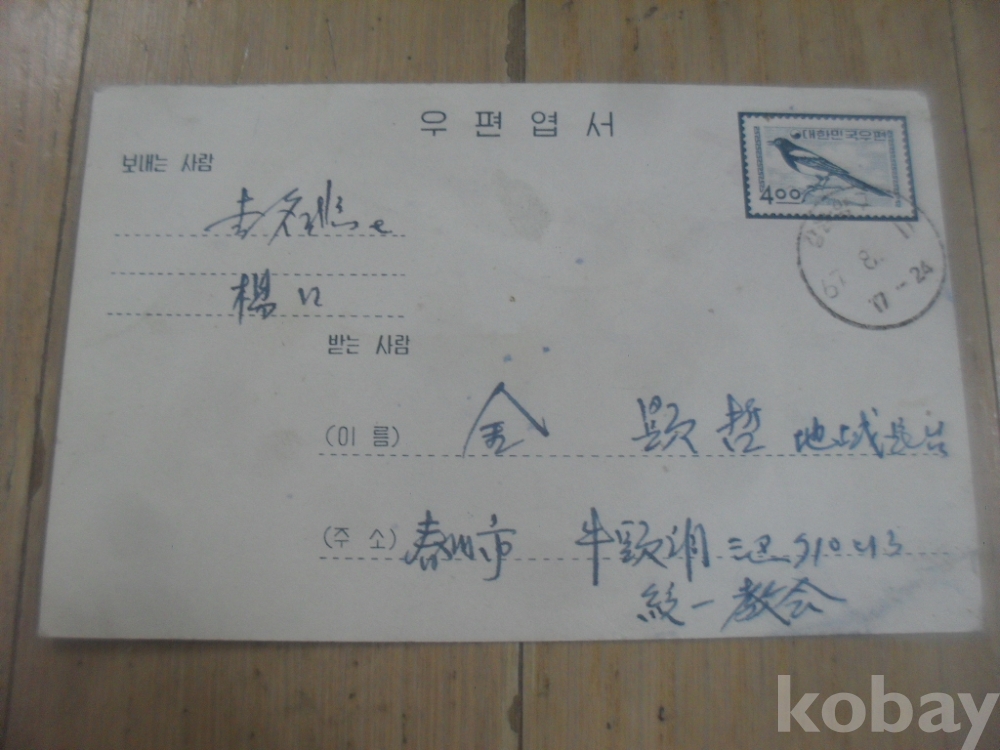 우편엽서
대한민국우편
400
보내는 사람
楊口
67. 8. 1
17-24
받는 사람
(이 름) 金 顯哲 地域長
(주 소) 春川市 牛頭洞
統一教会
kobay